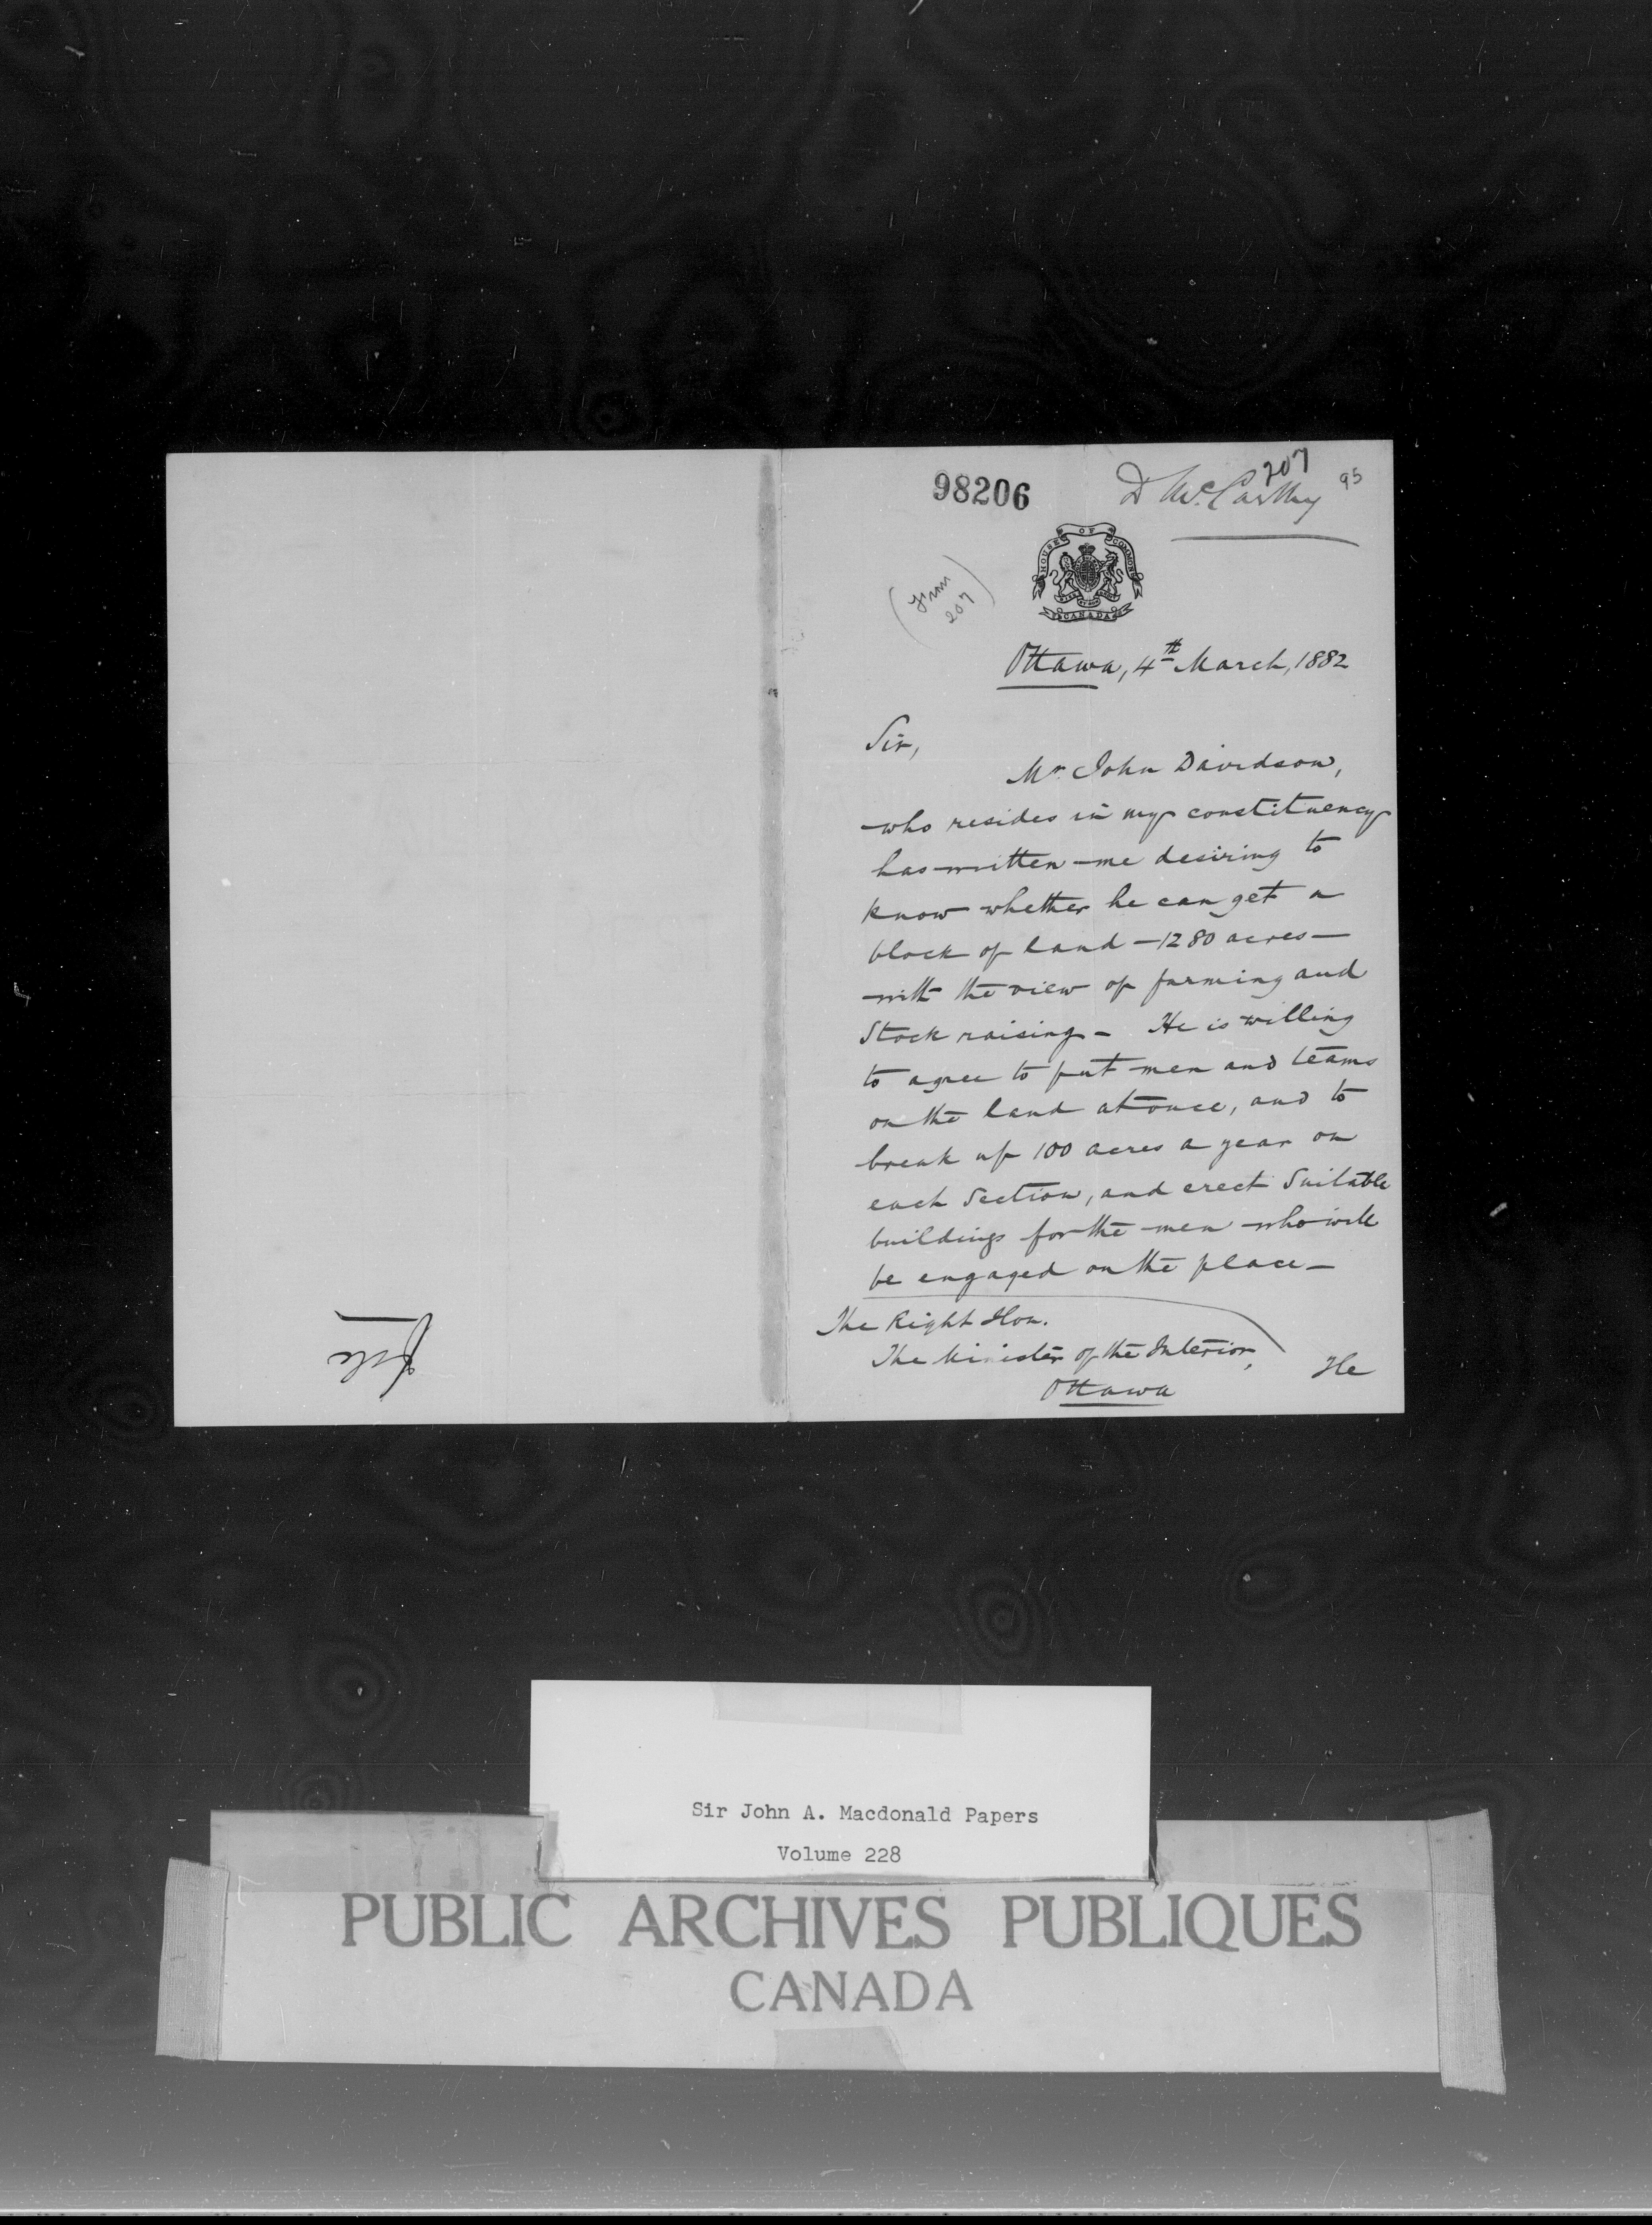 98206
207
D McCarthy
95
HOUSE OF COMMONS
CANADA
207
Ottawa, 4th March, 1882
Sir,
Mr John Davidson,
who resides in my constituency
has written me desiring to
know whether he can get a
block of land – 1280 acres –
with the view of farming and
Stock raising – He is willing
to agree to put men and teams
on the land at once, and to
break up 100 acres a year on
each Section, and erect Suitable
buildings for the men who will
be engaged on the place –
The Right Hon.
The Minister of the Interior,
Ottawa
He
Sir John A. Macdonald Papers
Volume 228
PUBLIC ARCHIVES PUBLIQUES
CANADA